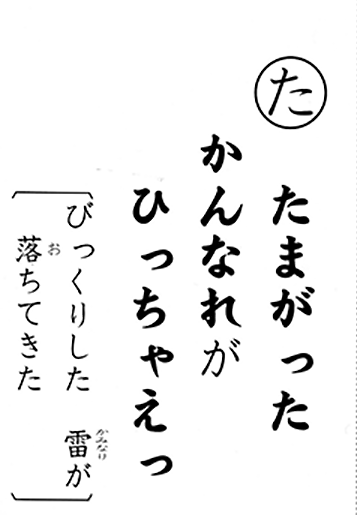 た
たまがった
かんなれが
ひっちゃえっ
びっくりした 雷が
かみなり
落ちてきた
お